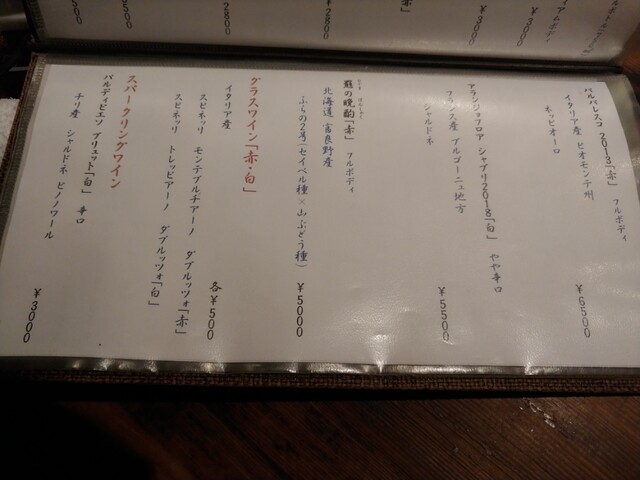 バルバレスコ 2013「赤」 フルボディ
イタリア産 ピオモンテ州
ネッビオーロ
￥6500
アランジョフロア シャブリ2018「白」 やや辛口
フランス産 ブルゴーニュ地方
シャルドネ
￥5500
羆の晩酌「赤」 フルボディ
北海道 富良野産
ふらの2号(セイベル種×山ぶどう種)
￥5000
グラスワイン「赤・白」
イタリア産
スピネッリ モンテプルチアーノ ダブルッツォ「赤」
スピネッリ トレッビアーノ ダブルッツォ「白」
各￥500
スパークリングワイン
バルディビエソ ブリュット「白」 辛口
チリ産 シャルドネ ピノノワール
￥3000